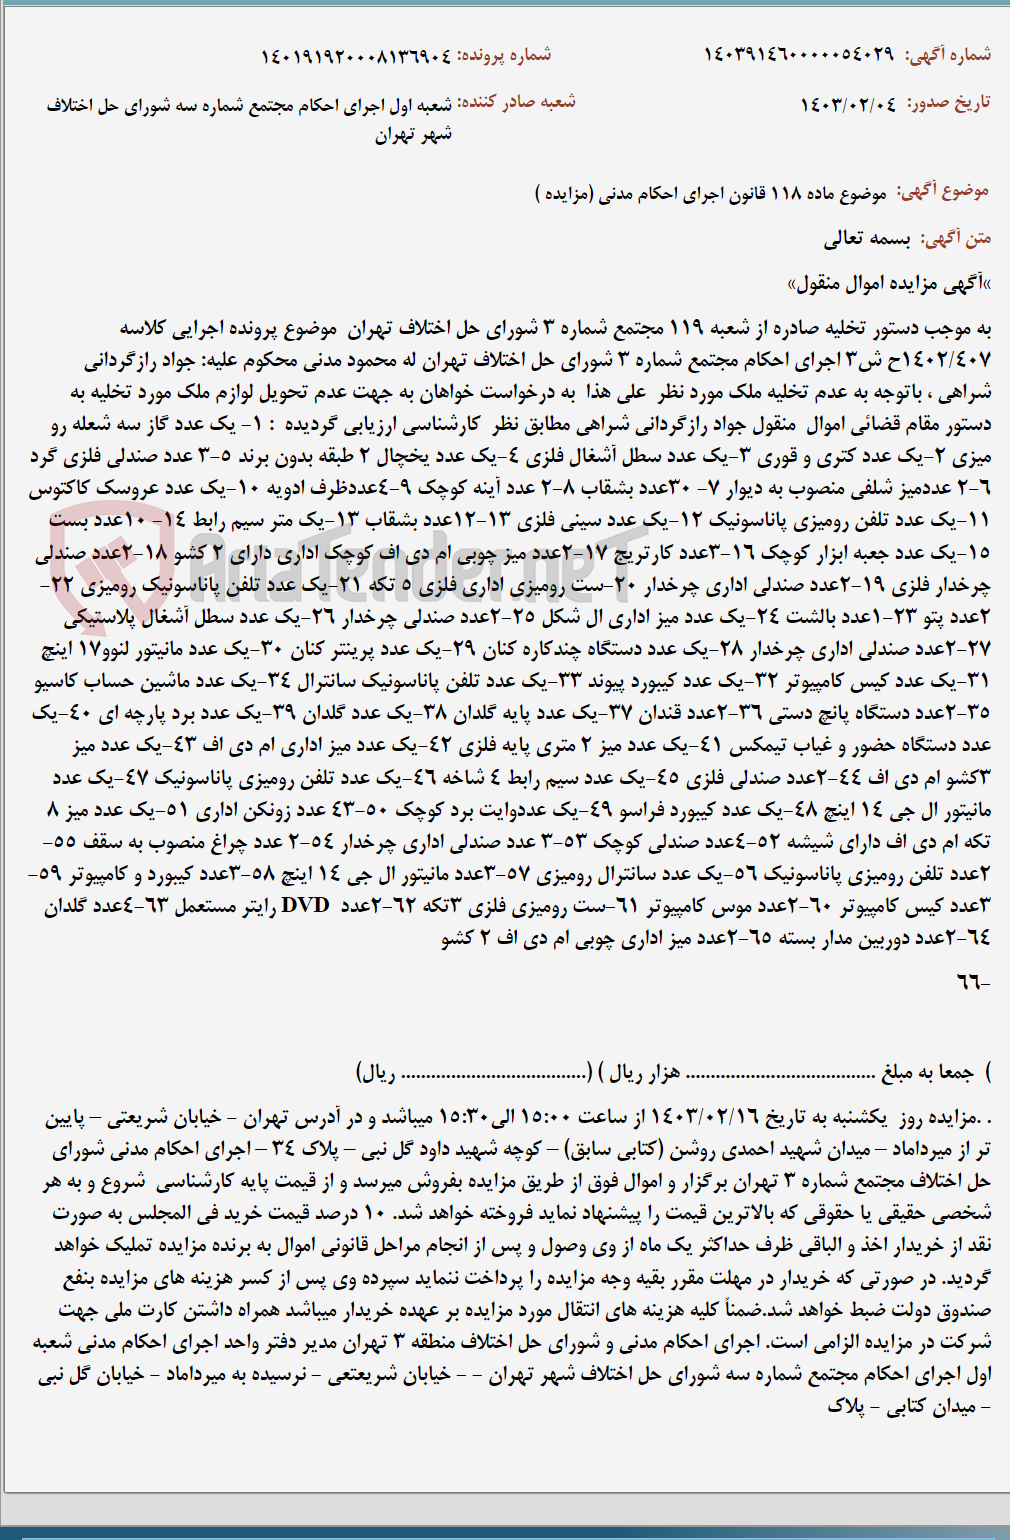 شماره آگهی: ۱۴۰۳۹۱۴۶۰۰۰۰۰۵۴۰۲۹ شماره پرونده: ۱۴۰۱۹۱۹۲۰۰۰۸۱۳۶۹۰۴
تاریخ صدور: ۱۴۰۳/۰۲/۰۴ شعبه صادر کننده: شعبه اول اجرای احکام مجتمع شماره سه شورای حل اختلاف
شهر تهران
موضوع آگهی: موضوع ماده ۱۱۸ قانون اجرای احکام مدنی (مزایده )
متن آگهی: بسمه تعالی
»آگهی مزایده اموال منقول»
به موجب دستور تخلیه صادره از شعبه ۱۱۹ مجتمع شماره ۳ شورای حل اختلاف تهران موضوع پرونده اجرایی کلاسه
۱۴۰۲/۴۰۷ح ش۳ اجرای احکام مجتمع شماره ۳ شورای حل اختلاف تهران له محمود مدنی محکوم علیه: جواد رازگردانی
شراهی ، باتوجه به عدم تخلیه ملک مورد نظر علی هذا به درخواست خواهان به جهت عدم تحویل لوازم ملک مورد تخلیه به
دستور مقام قضائی اموال منقول جواد رازگردانی شراهی مطابق نظر کارشناسی ارزیابی گردیده : ۱- یک عدد گاز سه شعله رو
میزی ۲-یک عدد کتری و قوری ۳-یک عدد سطل آشغال فلزی ۴-یک عدد یخچال ۲ طبقه بدون برند ۵-۳ عدد صندلی فلزی گرد
۶-۲ عددمیز شلفی منصوب به دیوار ۷- ۳۰عدد بشقاب ۸-۲ عدد آینه کوچک ۹-۴عددظرف ادویه ۱۰-یک عدد عروسک کاکتوس
۱۱-یک عدد تلفن رومیزی پاناسونیک ۱۲-یک عدد سینی فلزی ۱۳-۱۲عدد بشقاب ۱۳-یک متر سیم رابط ۱۴- ۱۰عدد بست
۱۵-یک عدد جعبه ابزار کوچک ۱۶-۳عدد کارتریج ۱۷-۲عدد میز چوبی ام دی اف کوچک اداری دارای ۲ کشو ۱۸-۲عدد صندلی
چرخدار فلزی ۱۹-۲عدد صندلی اداری چرخدار ۲۰-ست رومیزی اداری فلزی ۵ تکه ۲۱-یک عدد تلفن پاناسونیک رومیزی ۲۲-
۲عدد پتو ۲۳-۱عدد بالشت ۲۴-یک عدد میز اداری ال شکل ۲۵-۲عدد صندلی چرخدار ۲۶-یک عدد سطل آشغال پلاستیکی
۲۷-۲عدد صندلی اداری چرخدار ۲۸-یک عدد دستگاه چندکاره کنان ۲۹-یک عدد پرینتر کنان ۳۰-یک عدد مانیتور لنوو۱۷ اینچ
۳۱-یک عدد کیس کامپیوتر ۳۲-یک عدد کیبورد پیوند ۳۳-یک عدد تلفن پاناسونیک سانترال ۳۴-یک عدد ماشین حساب کاسیو
۳۵-۲عدد دستگاه پانچ دستی ۳۶-۲عدد قندان ۳۷-یک عدد پایه گلدان ۳۸-یک عدد گلدان ۳۹-یک عدد برد پارچه ای ۴۰-یک
عدد دستگاه حضور و غیاب تیمکس ۴۱-یک عدد میز ۲ متری پایه فلزی ۴۲-یک عدد میز اداری ام دی اف ۴۳-یک عدد میز
۳کشو ام دی اف ۴۴-۲عدد صندلی فلزی ۴۵-یک عدد سیم رابط ۴ شاخه ۴۶-یک عدد تلفن رومیزی پاناسونیک ۴۷-یک عدد
مانیتور ال جی ۱۴ اینچ ۴۸-یک عدد کیبورد فراسو ۴۹-یک عددوایت برد کوچک ۵۰-۴۳ عدد زونکن اداری ۵۱-یک عدد میز ۸
تکه ام دی اف دارای شیشه ۵۲-۴عدد صندلی کوچک ۵۳-۳ عدد صندلی اداری چرخدار ۵۴-۲ عدد چراغ منصوب به سقف ۵۵-
۲عدد تلفن رومیزی پاناسونیک ۵۶-یک عدد سانترال رومیزی ۵۷-۳عدد مانیتور ال جی ۱۴ اینچ ۵۸-۳عدد کیبورد و کامپیوتر ۵۹-
۳عدد کیس کامپیوتر ۶۰-۲عدد موس کامپیوتر ۶۱-ست رومیزی فلزی ۳تکه ۶۲-۲عدد DVD رایتر مستعمل ۶۳-۴عدد گلدان
۶۴-۲عدد دوربین مدار بسته ۶۵-۲عدد میز اداری چوبی ام دی اف ۲ کشو
-۶۶
) جمعا به مبلغ ...................................... هزار ریال ) (..................................... ریال)
. .مزایده روز یکشنبه به تاریخ ۱۴۰۳/۰۲/۱۶ از ساعت ۱۵:۰۰ الی۱۵:۳۰ میباشد و در آدرس تهران - خیابان شریعتی – پایین
تر از میرداماد – میدان شهید احمدی روشن (کتابی سابق) – کوچه شهید داود گل نبی – پلاک ۳۴ – اجرای احکام مدنی شورای
حل اختلاف مجتمع شماره ۳ تهران برگزار و اموال فوق از طریق مزایده بفروش میرسد و از قیمت پایه کارشناسی شروع و به هر
شخصی حقیقی یا حقوقی که بالاترین قیمت را پیشنهاد نماید فروخته خواهد شد. ۱۰ درصد قیمت خرید فی المجلس به صورت
نقد از خریدار اخذ و الباقی ظرف حداکثر یک ماه از وی وصول و پس از انجام مراحل قانونی اموال به برنده مزایده تملیک خواهد
گردید. در صورتی که خریدار در مهلت مقرر بقیه وجه مزایده را پرداخت ننماید سپرده وی پس از کسر هزینه های مزایده بنفع
صندوق دولت ضبط خواهد شد.ضمناً کلیه هزینه های انتقال مورد مزایده بر عهده خریدار میباشد همراه داشتن کارت ملی جهت
شرکت در مزایده الزامی است. اجرای احکام مدنی و شورای حل اختلاف منطقه ۳ تهران مدیر دفتر واحد اجرای احکام مدنی شعبه
اول اجرای احکام مجتمع شماره سه شورای حل اختلاف شهر تهران - - خیابان شریعتعی - نرسیده به میرداماد - خیابان گل نبی
- میدان کتابی - پلاک
AriaTender.neT